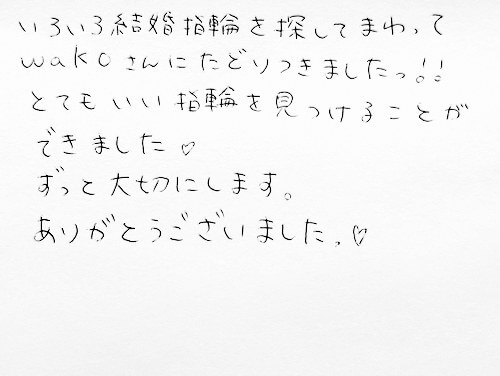 いろいろ結婚指輪を探してまわって
wakoさんにたどりつきましたっ!!
とてもいい指輪を見つけることが
できました♡
ずっと大切にします。
ありがとうございました。♡